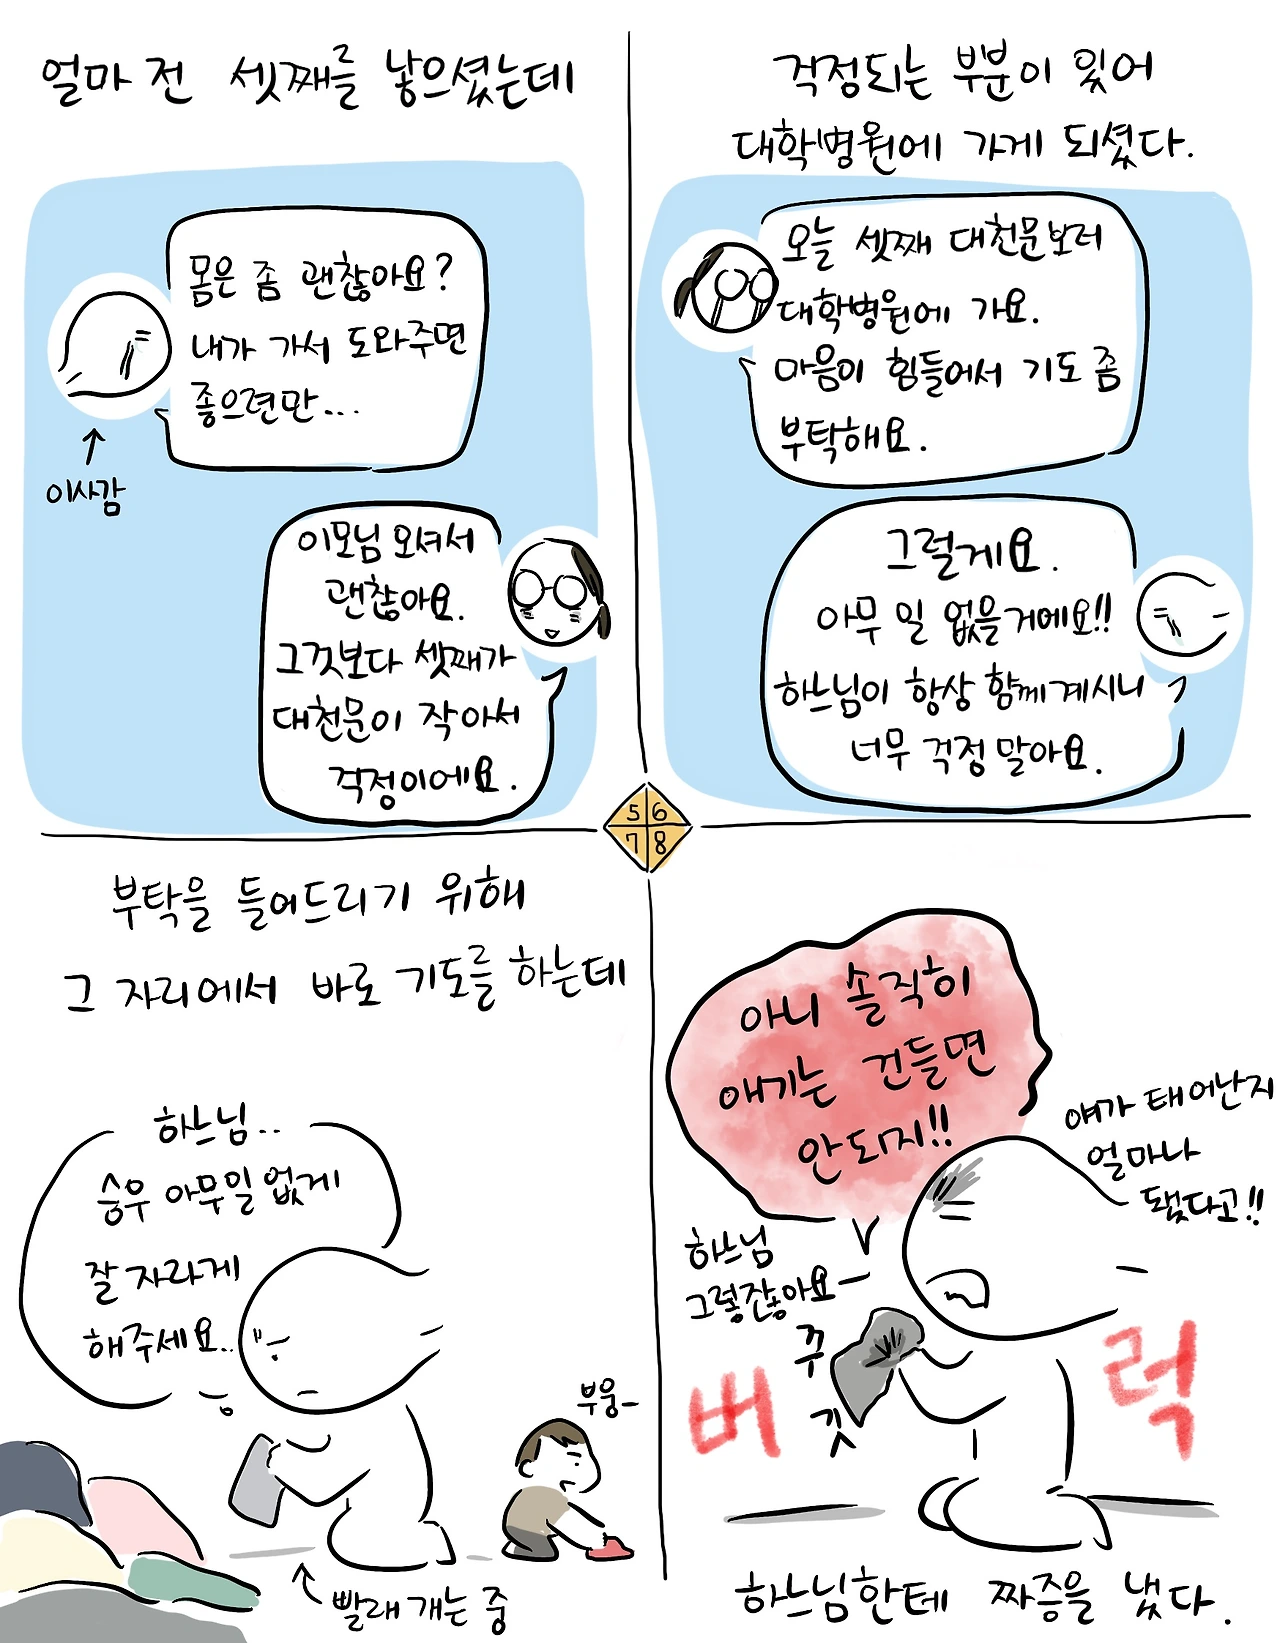 얼마 전 셋째를 낳으셨는데
몸은 좀 괜찮아요?
내가 가서 도와주면
좋으련만...
이사감
이모님 오셔서
괜찮아요.
그것보다 셋째가
대천문이 작아서
걱정이에요.
걱정되는 부분이 있어
대학병원에 가게 되셨다.
오늘 셋째 대천문보러
대학병원에 가요.
마음이 힘들어서 기도 좀
부탁해요.
그럴게요.
아무 일 없을거에요!!
하느님이 항상 함께계시니
너무 걱정 말아요.
5 6
7 8
부탁을 들어드리기 위해
그 자리에서 바로 기도를 하는데
하느님..
승우 아무일 없게
잘 자라게
해주세요..
부웅-
빨래 개는 중
아니 솔직히
애기는 건들면
안되지!!
얘가 태어난지
얼마나
됐다고!!
하느님
그렇잖아요-
꾸
깃
버럭
하느님한테 짜증을 냈다.